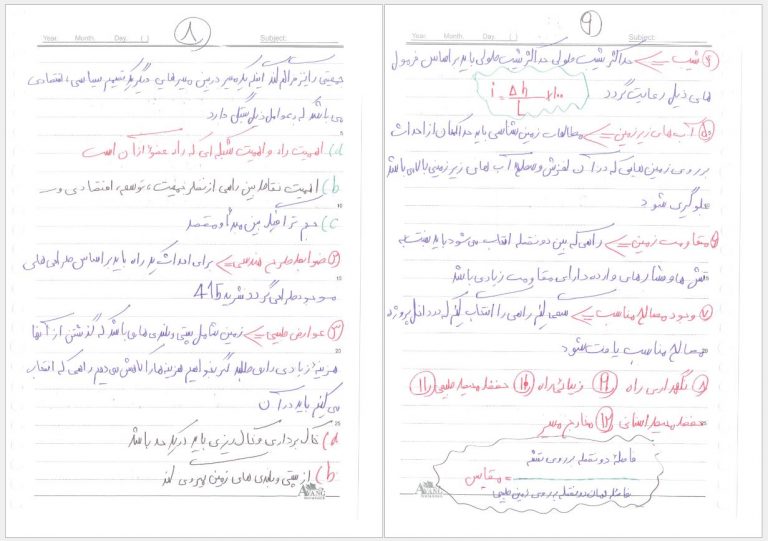 ۸
Year. Month. Day. ( ) Subject:
جمعیتی را نیز فراهم کند اینکه یک مسیر در بین مسیرهای دیگر یک تقسیم سیاسی، اقتصادی
می باشد که به عوامل ذیل بستگی دارد
a) اهمیت راه و اهمیت شبکه ای که راه عضو از آن است
b) اهمیت نقاط بین راهی از نظر جمعیت، توسعه، اقتصادی و ...
c) حجم ترافیک بین مبدأ و مقصد
۲) ضوابط طرح هندسی <= برای احداث یک راه باید بر اساس طراحی های
موجود طراحی گردد نشریه 415
۳) عوارض طبیعی <= زمین شامل پستی و بلندی های باشد که گذشتن از آنها
هزینهٔ زیادی را می طلبد گر بخواهیم هزینه ها را کاهش می دهیم راهی که انتخاب
می کنیم باید در آن
a) خاکبرداری و خاکریزی باید در یک حد باشد
b) از پستی و بلندی های زمین پیروی کند
AVANG
۹
Year. Month. Day. ( ) Subject:
۴) شیب <= حداکثر شیب طولی حداکثر شیب طولی باید بر اساس فرمول
های ذیل رعایت گردد
i = Δh / L ×۱۰۰
۵) آب های زیرزمینی <= مطالعات زمین شناسی باید حداالمکان از احداث
بر روی زمین هایی که در آن لغزش و سطح آب های زیرزمینی بالا می باشد
جلوگیری شود
۶) مقاومت زمین <= راهی که بین دو نقطه انتخاب می شود باید نسبت به
تنش ها و فشارهای وارده دارای مقاومت زیادی باشد
۷) وجود مصالح مناسب <= سعی کنیم راهی را انتخاب کنیم که در داخل پروژه
مصالح مناسب یافت شود
۸) نگهداری راه ۹) زیبایی راه ۱۰) حفظ محیط طبیعی ۱۱)
حفظ محیط انسانی ۱۲) مخارج مسیر
فاصلهٔ دو نقطه بر روی نقشه
مقیاس =
فاصلهٔ همان دو نقطه بر روی زمین طبیعی
AVANG